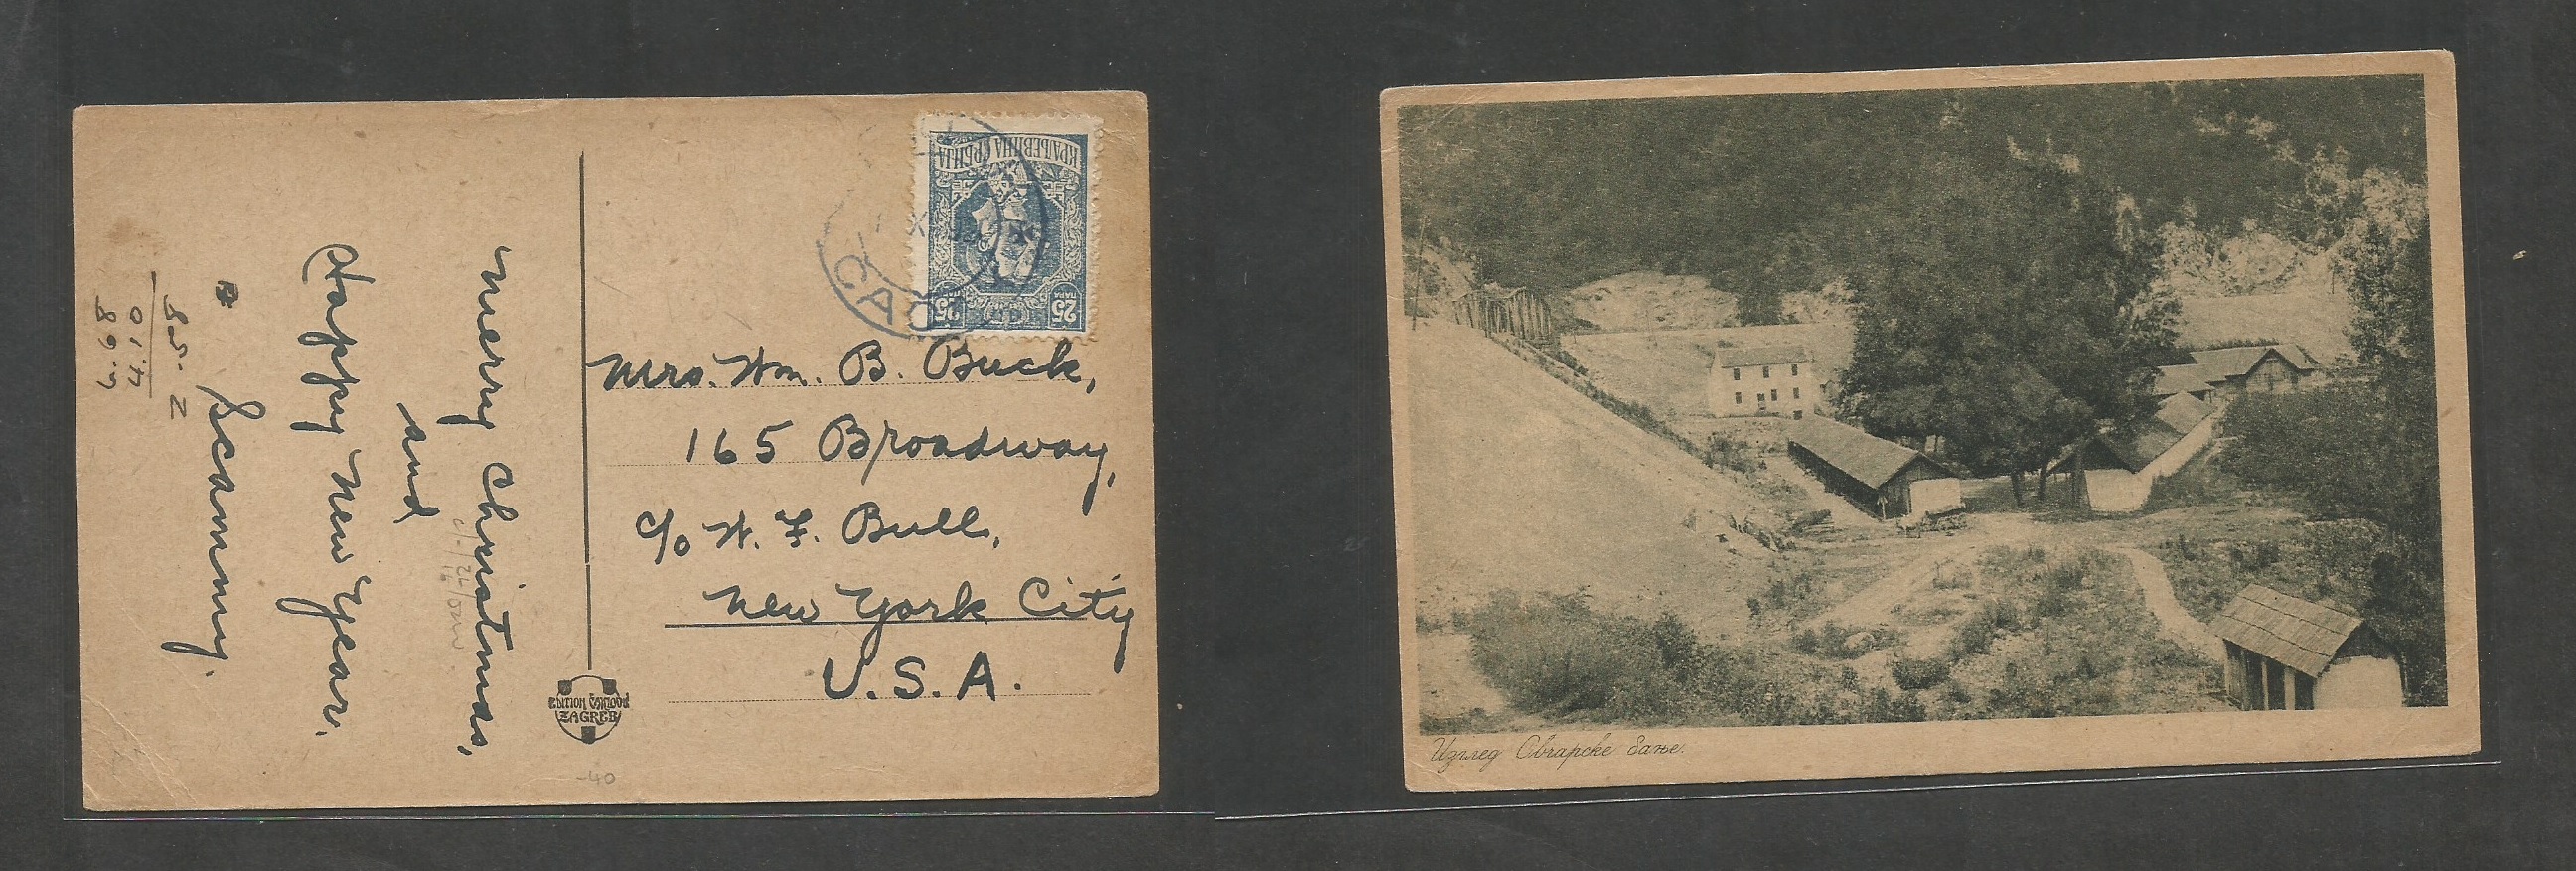 КРАЉЕВИНА СРБИЈА
25 ПАРА 25
Mrs. Wm. B. Buck,
165 Broadway,
c/o W. F. Bull,
New York City
U.S.A.
Merry Christmas,
and
Happy New Year.
Scammy.
85-2
4.10
89.7
EDITION
ZAGREB
-40
Изглед Овчарске бање.